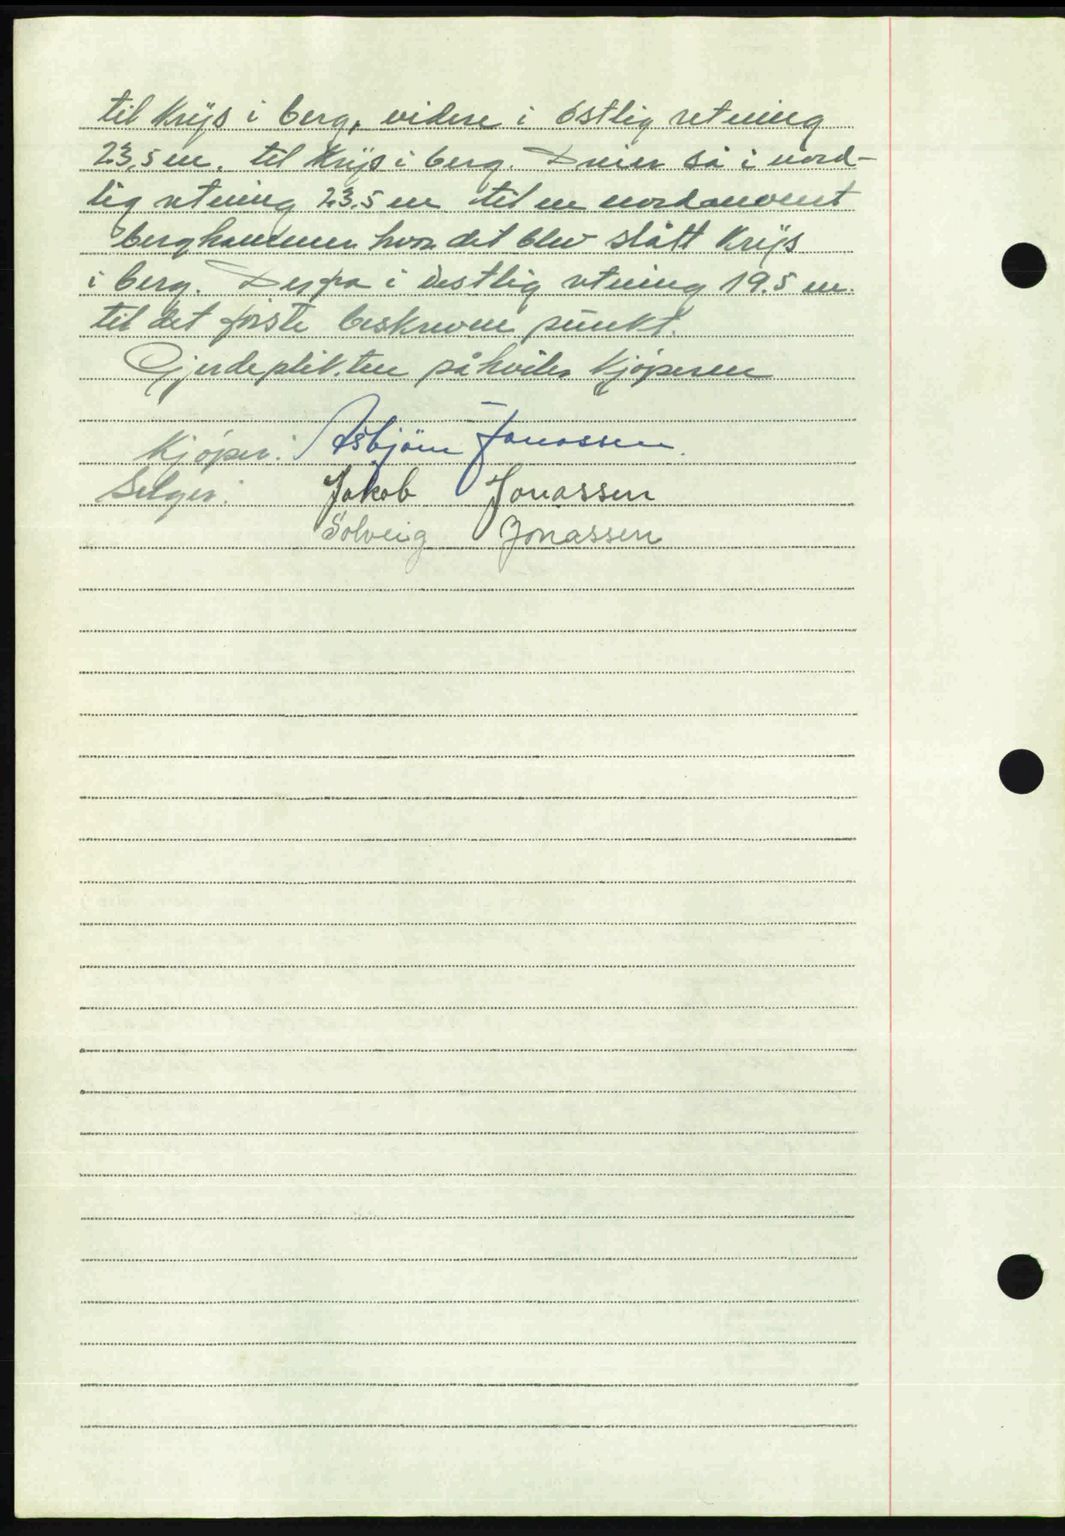 til krys i berg, videre i östlig retning
23,5 m. til krys i berg. Dreier så i nord-
lig retning 23.5 m til en nordenomt
berghammer hvor det blev slått kryss
i berg. Derfra i vestlig retning 19.5 m.
til det første beskrevne punkt.
Gjerdeplikten påhviler kjøperen
Kjøper: Asbjörn Jonassen.
Selger: Jakob Jonassen
Solveig Jonassen